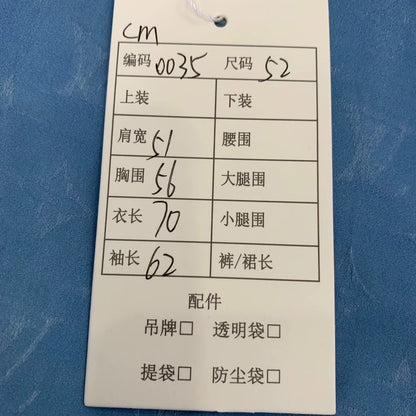 cm
编码 0035 尺码 52
上装 下装
肩宽 51 腰围
胸围 56 大腿围
衣长 70 小腿围
袖长 62 裤/裙长
配件
吊牌□ 透明袋□
提袋□ 防尘袋□